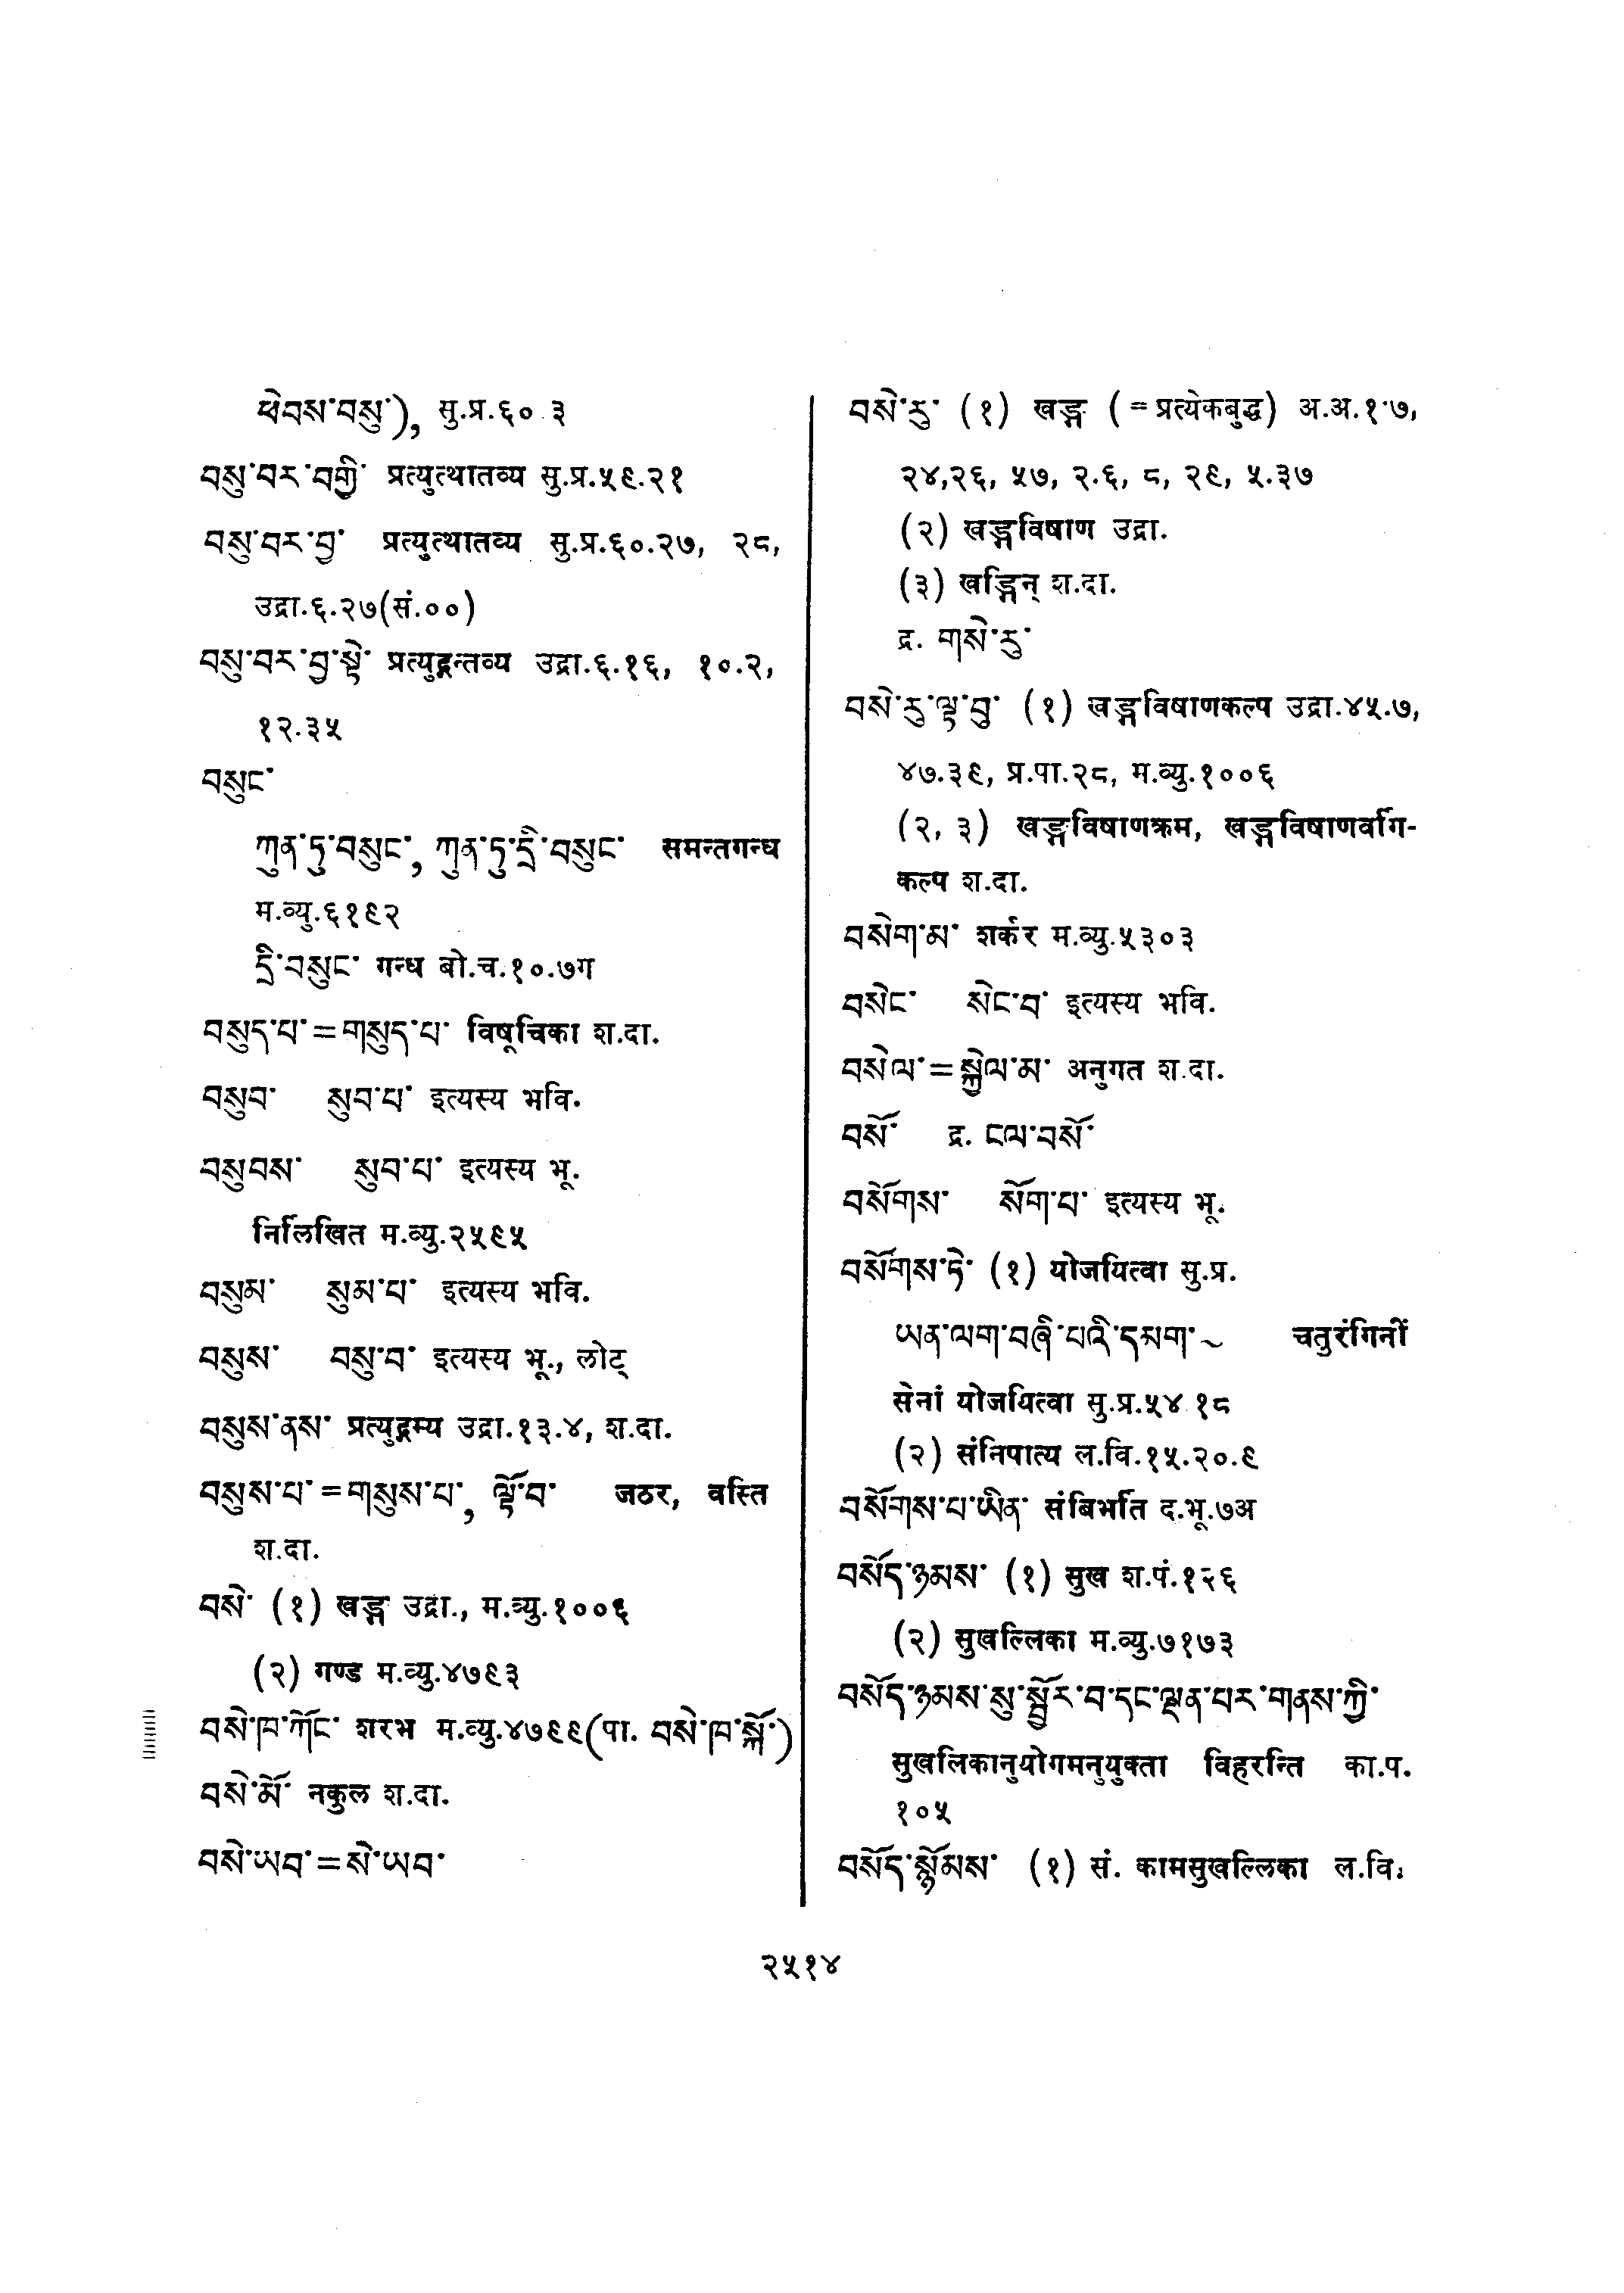 ཕེབས་བསུ་), सु.प्र.६०.३
བསུ་བར་བགྱི་ प्रत्युत्थातव्य सु.प्र.५९.२१
བསུ་བར་བྱ་ प्रत्युत्थातव्य सु.प्र.६०.२७, २८,
उद्रा.६.२७(सं.००)
བསུ་བར་བྱ་སྟེ་ प्रत्युद्गन्तव्य उद्रा.६.१६, १०.२,
१२.३५
བསུང་
ཀུན་ཏུ་བསུང་, ཀུན་ཏུ་དྲི་བསུང་ समन्तगन्ध
म.व्यु.६१९२
དྲི་བསུང་ गन्ध बो.च.१०.७ग
བསུད་པ་=གསུད་པ་ विषूचिका श.दा.
བསུབ་ སུབ་པ་ इत्यस्य भवि.
བསུབས་ སུབ་པ་ इत्यस्य भू.
निर्लिखित म.व्यु.२५९५
བསུམ་ སུམ་པ་ इत्यस्य भवि.
བསུས་ བསུ་བ་ इत्यस्य भू., लोट्
བསུས་ནས་ प्रत्युद्गम्य उद्रा.१३.४, श.दा.
བསུས་པ་=གསུས་པ་, ལྟོ་བ་ जठर, वस्ति
श.दा.
བསེ་ (१) खड्ग उद्रा., म.व्यु.१००६
(२) गण्ड म.व्यु.४७९३
བསེ་ཁ་ཀོང་ शरभ म.व्यु.४७९९(पा. བསེ་ཁ་སྐོ་)
བསེ་མོ་ नकुल श.दा.
བསེ་ཡབ་=སེ་ཡབ་
བསེ་རུ་ (१) खड्ग (=प्रत्येकबुद्ध) अ.अ.१.७,
२४,२६, ५७, २.६, ८, २९, ५.३७
(२) खड्गविषाण उद्रा.
(३) खड्गिन् श.दा.
द्र. གསེ་རུ་
བསེ་རུ་ལྟ་བུ་ (१) खड्गविषाणकल्प उद्रा.४५.७,
४७.३९, प्र.पा.२८, म.व्यु.१००६
(२, ३) खड्गविषाणक्रम, खड्गविषाणवर्गि-
कल्प श.दा.
བསེག་མ་ शर्कर म.व्यु.५३०३
བསེང་ སེང་བ་ इत्यस्य भवि.
བསེལ་=སྐྱེལ་མ་ अनुगत श.दा.
བསོ་ द्र. ངལ་བསོ་
བསོགས་ སོག་པ་ इत्यस्य भू.
བསོགས་ཏེ་ (१) योजयित्वा सु.प्र.
ཡན་ལག་བཞི་པའི་དམག་~ चतुरंगिनीं
सेनां योजयित्वा सु.प्र.५४.१८
(२) संनिपात्य ल.वि.१५.२०.९
བསོགས་པ་ཡིན་ संबिभर्ति द.भू.७अ
བསོད་ཉམས་ (१) सुख श.पं.१२६
(२) सुखल्लिका म.व्यु.७१७३
བསོད་ཉམས་སུ་སྦྱོར་བ་དང་ལྡན་པར་གནས་ཀྱི་
सुखलिकानुयोगमनुयुक्ता विहरन्ति का.प.
१०५
བསོད་སྙོམས་ (१) सं. कामसुखल्लिका ल.वि.
२५१४